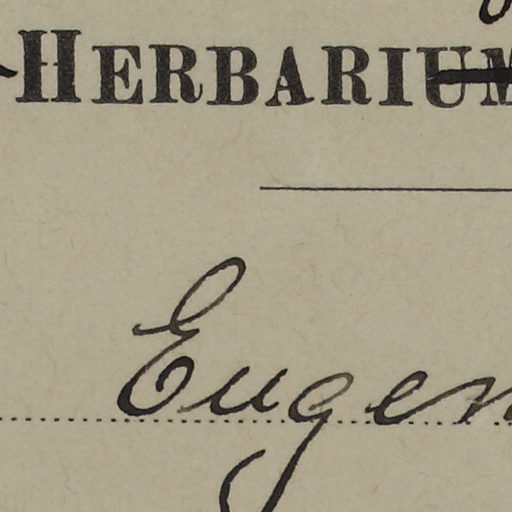 HERBARIUM
Eugen